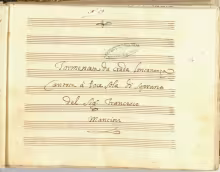 Tormentata da cruda lontananza
Cantata à Voce sola di Soprano
del Sig.r Francesco
Mancini